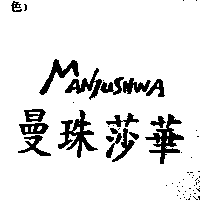 色)
MANJUSHWA
曼珠莎華